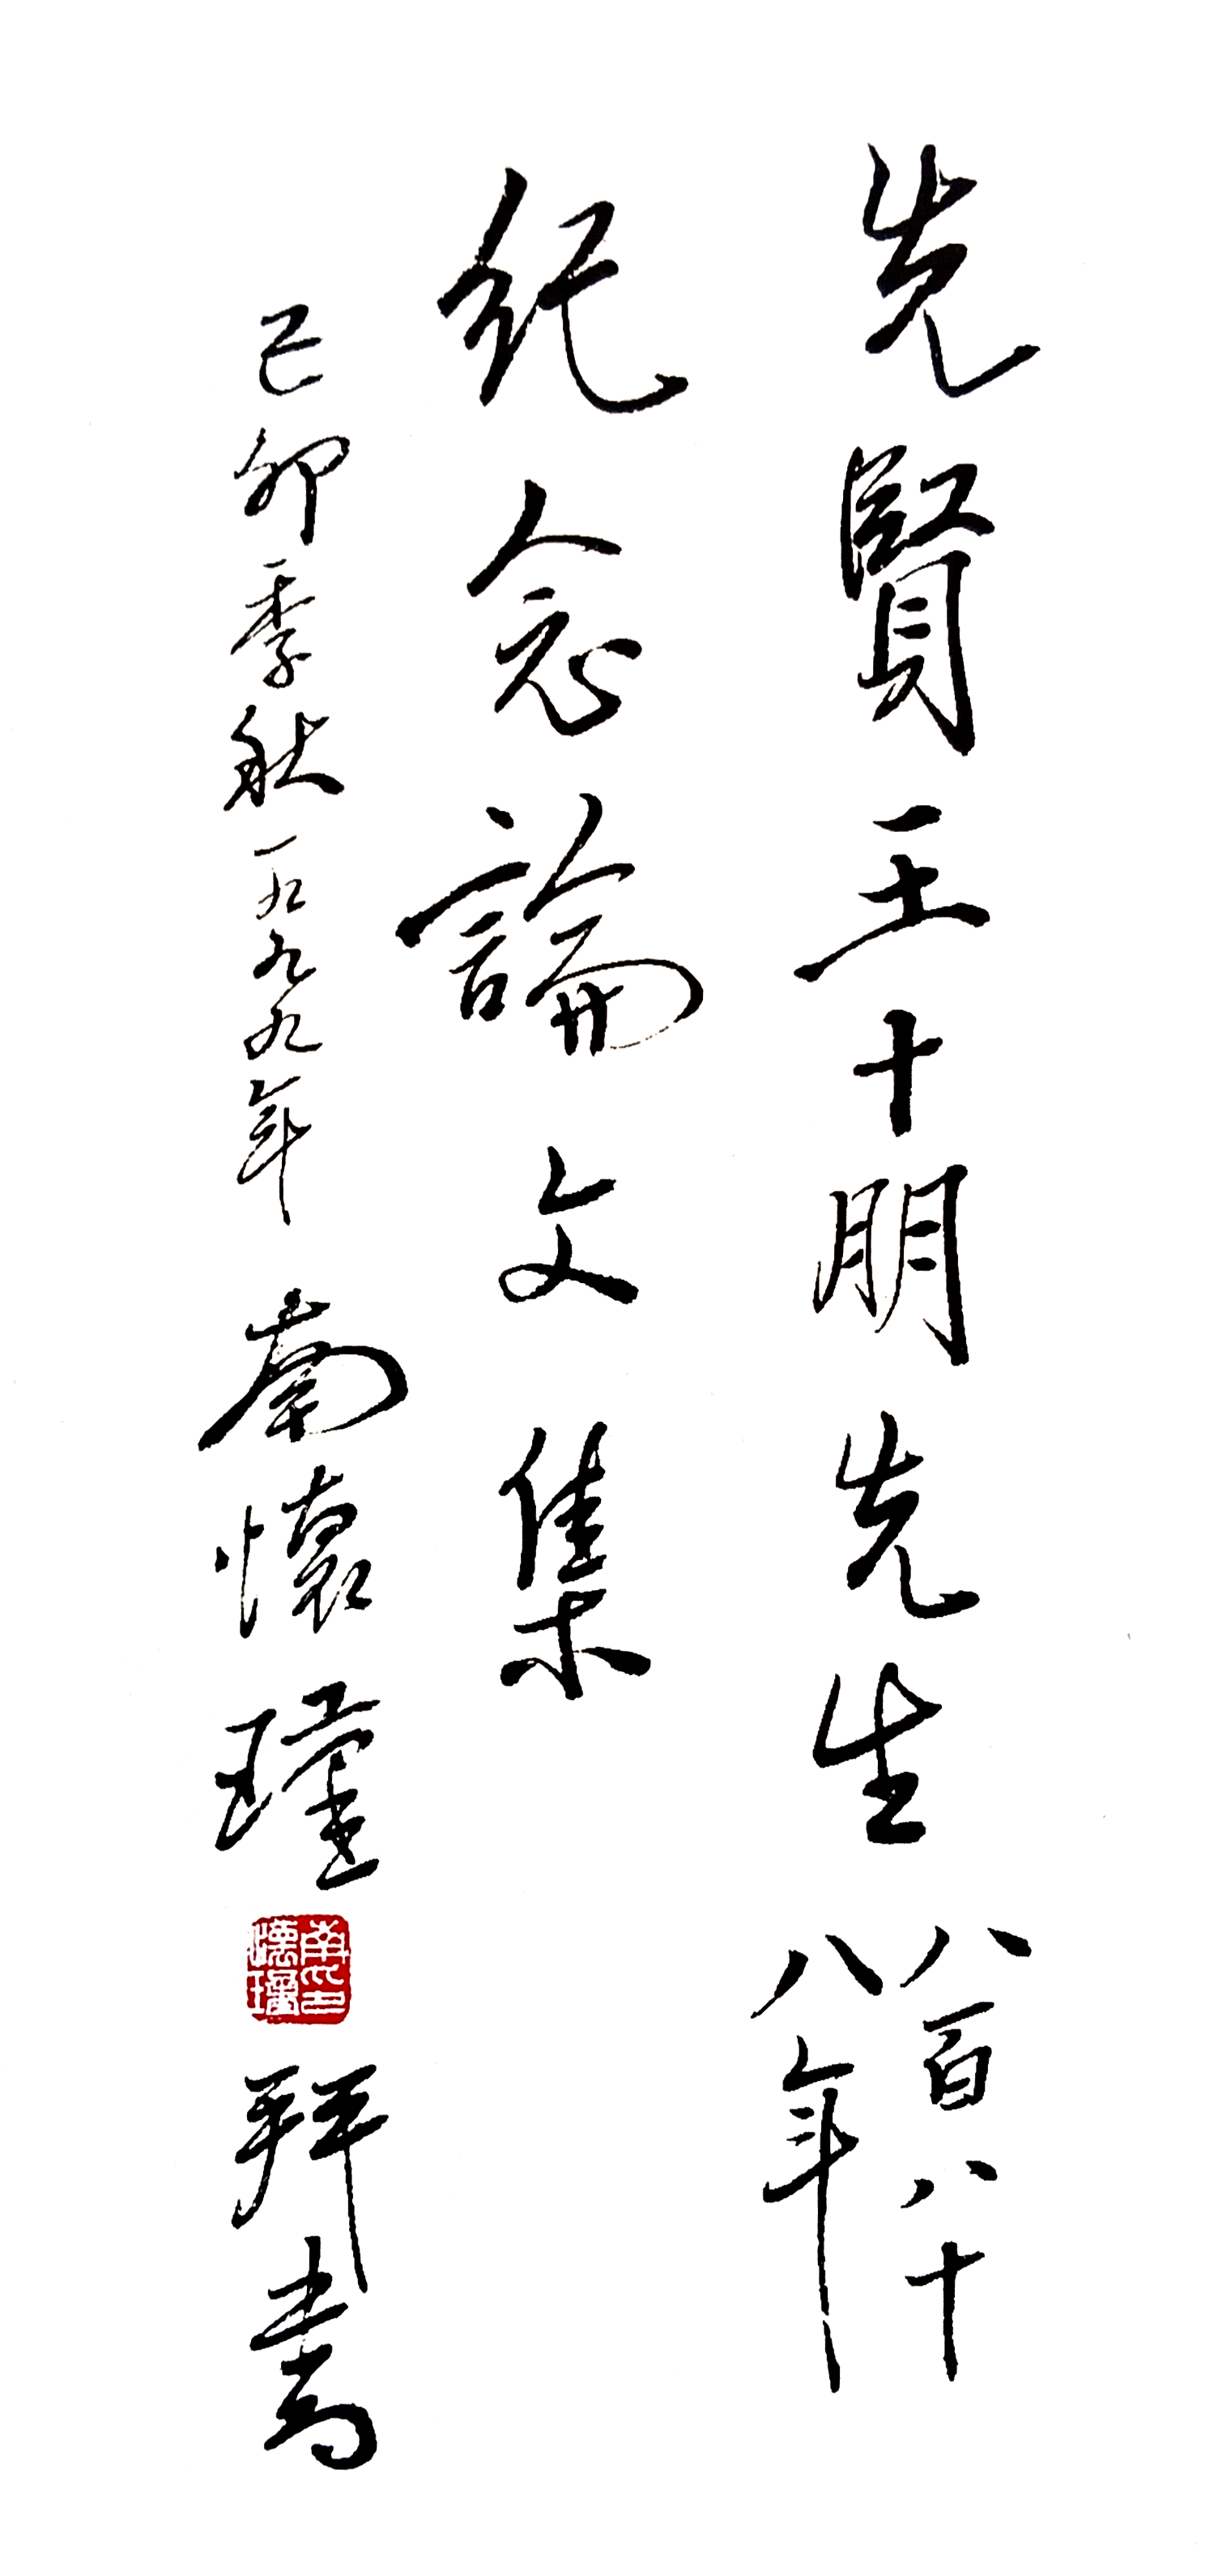 先賢王十朋先生八百八十八年
紀念論文集
己卯季秋一九九九年 南懷瑾 拜書
南懷瑾印